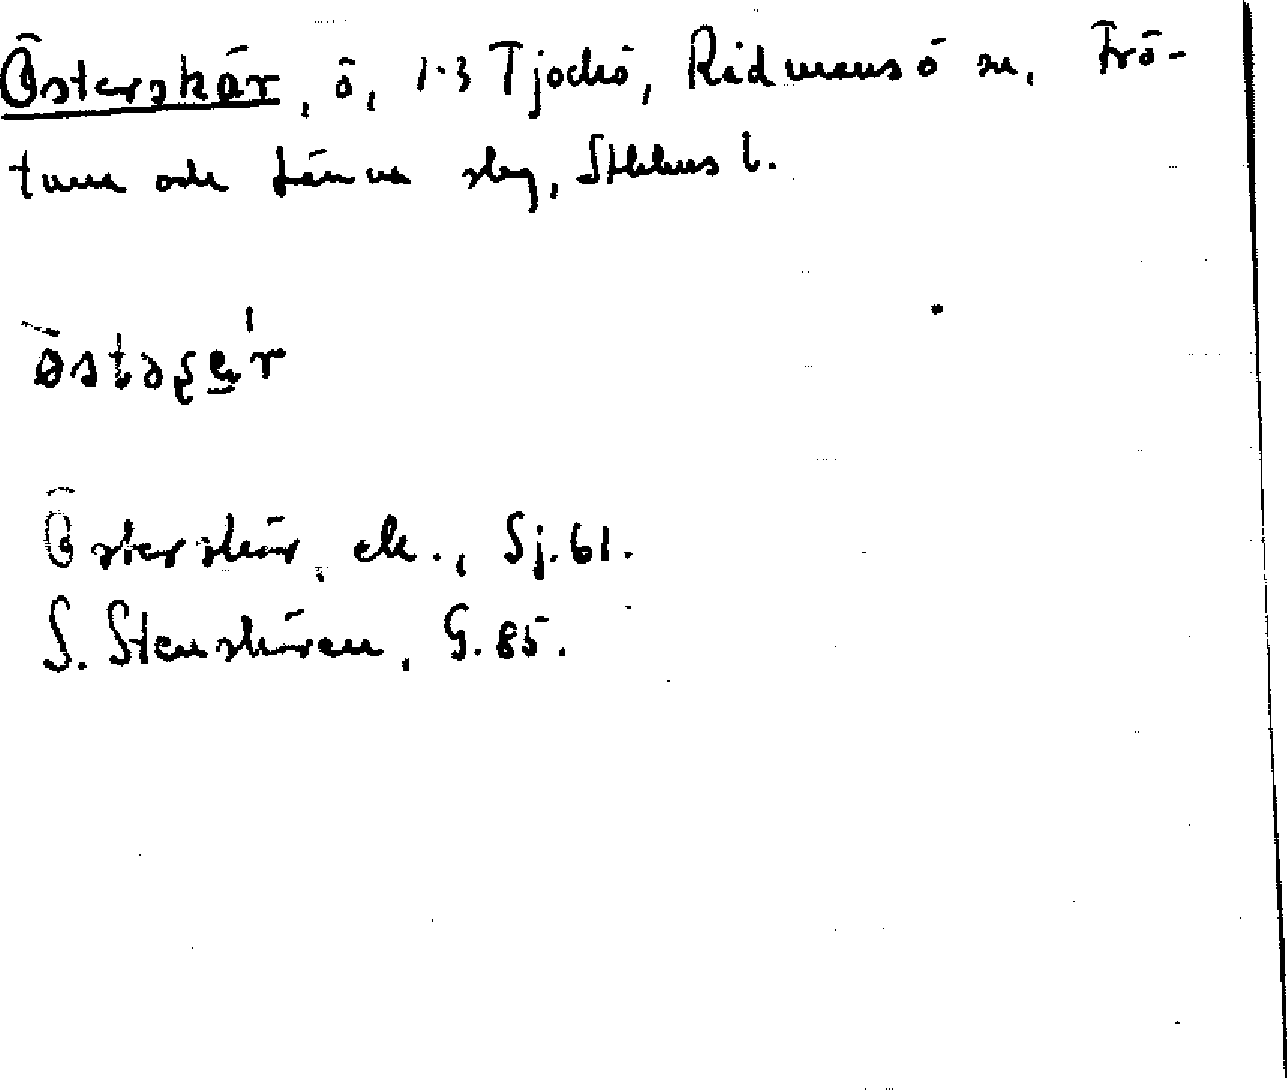 Österskär, ö, 1-3 Tjockö, Rådmansö sn, Frö-
tuna och Länna slg, Sthlms l.
Österskär, ek., Sj.61.
S. Stenskären, G.85.